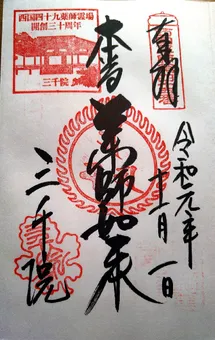 奉拝
令和元年
十一月一日
西国四十九薬師霊場
開創三十周年
三千院
本尊
薬師如来
三千院